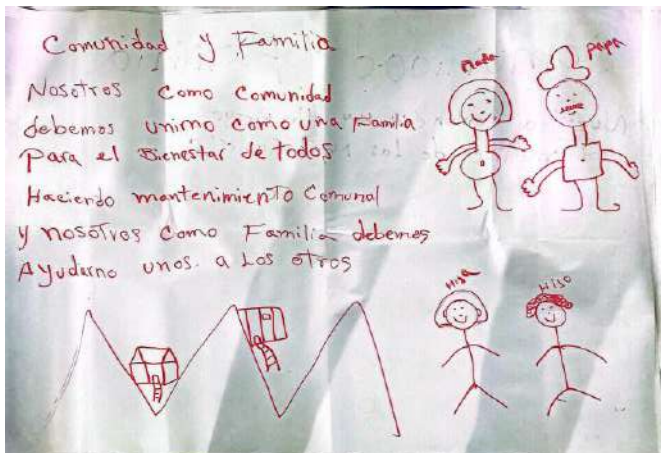 Comunidad y Familia
Nosotros como comunidad
debemos unirno como una Familia
para el Bienestar de todos
Haciendo mantenimiento Comunal
y nosotros como Familia debemos
Ayudarno unos a Los otros
Mama
papa
Hija
Hijo